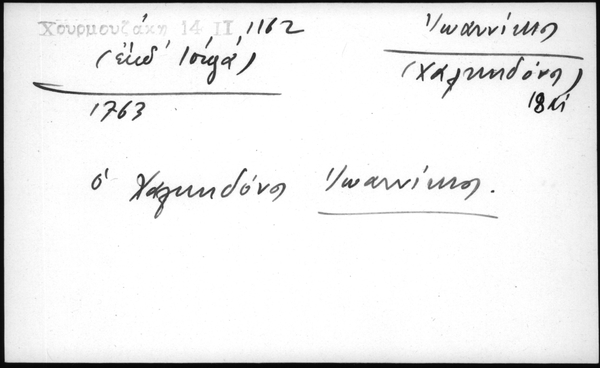 Χουρμουζάκη 14 II, 1162
(ἐκδ. Ἰσιγα)
1763
Ἰωαννίκιος
(Χαλκηδόνος)
18αἰ
ὁ Χαλκηδόνος Ἰωαννίκιος.